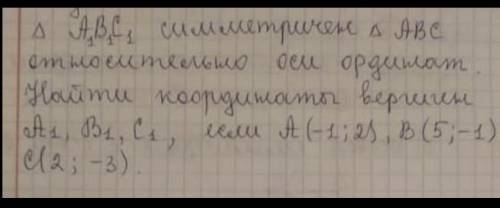 Δ A₁B₁C₁ симметричен Δ ABC
относительно оси ординат.
Найти координаты вершин
A₁, B₁, C₁, если A(-1; 2), B(5; -1)
C(2; -3).